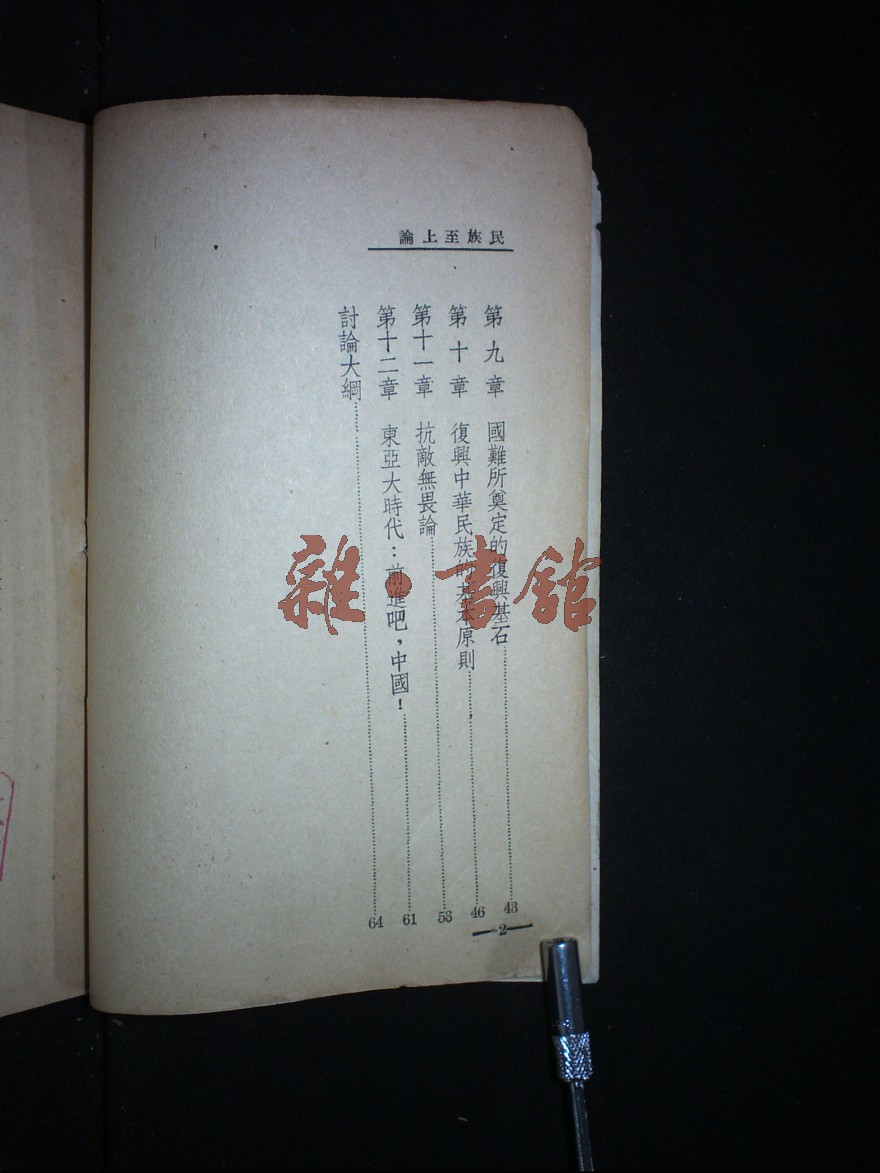 民族至上論
第九章 國難所奠定的復興基石……43
第十章 復興中華民族的基本原則……46
第十一章 抗敵無畏論……53
第十二章 東亞大時代：前進吧，中國！……61
討論大綱……64
—2—
雜·書館